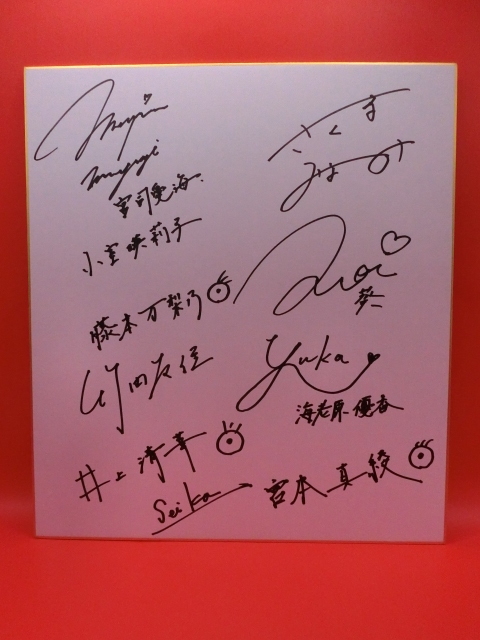 宮司愛海
小室瑛莉子
藤本万梨乃
竹田友佳
井上清華
Seika
さくま
みなみ
Aoi
葵
Yuka
海老原優香
宮本真綾